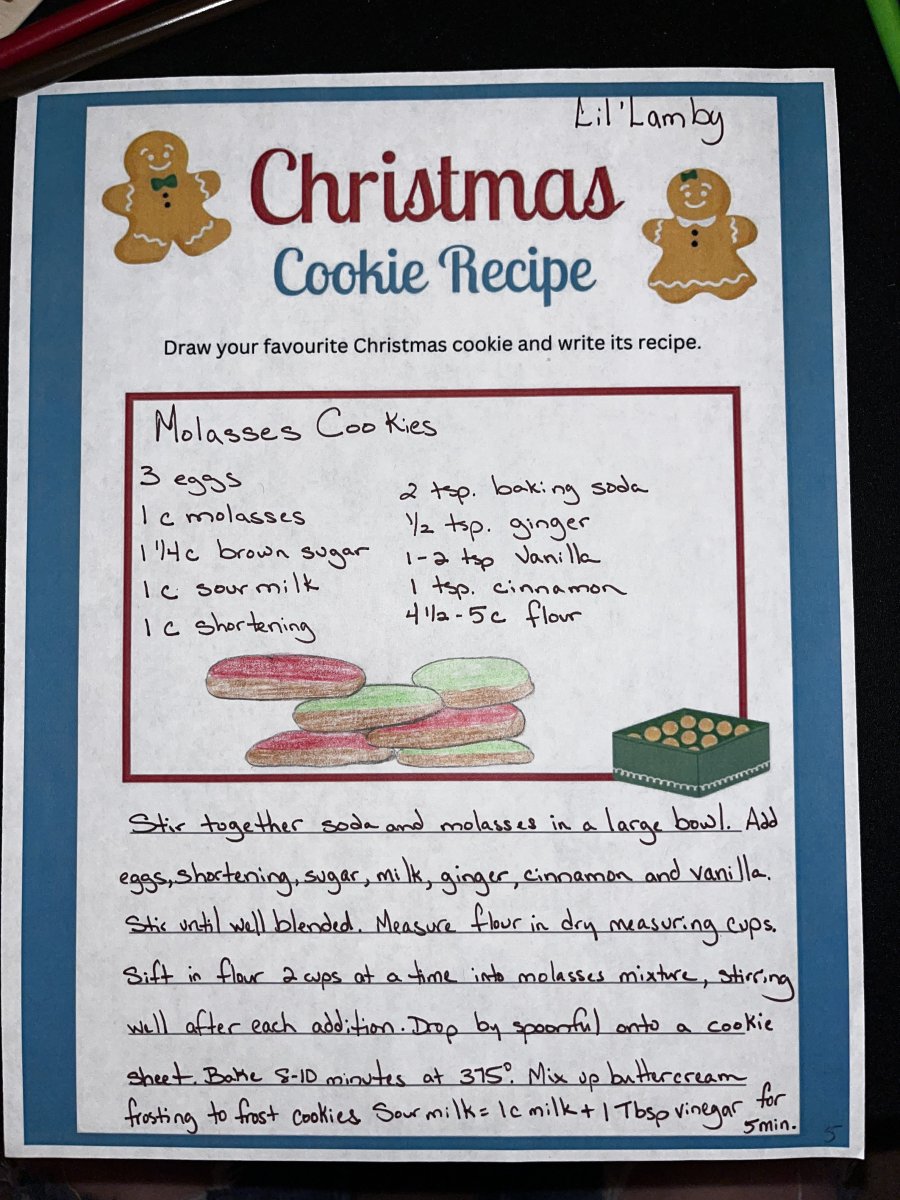 Lil'Lamby
Christmas
Cookie Recipe
Draw your favourite Christmas cookie and write its recipe.
Molasses Cookies
3 eggs
1 c molasses
1 1/4 c brown sugar
1 c sour milk
1 c shortening
2 tsp. baking soda
1/2 tsp. ginger
1-2 tsp vanilla
1 tsp. cinnamon
4 1/2 - 5 c flour
Stir together soda and molasses in a large bowl. Add
eggs, shortening, sugar, milk, ginger, cinnamon and vanilla.
Stir until well blended. Measure flour in dry measuring cups.
Sift in flour 2 cups at a time into molasses mixture, stirring
well after each addition. Drop by spoonful onto a cookie
sheet. Bake 8-10 minutes at 375°. Mix up buttercream
frosting to frost cookies Sour milk = 1c milk + 1 Tbsp vinegar for
5 min.
5